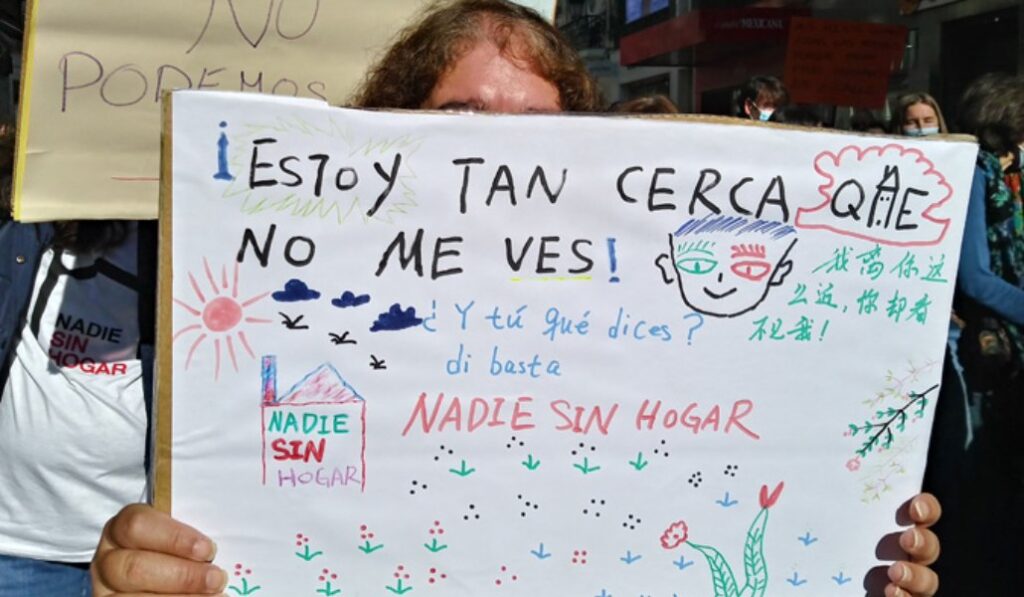 NO
PODEMOS
MEXICANA
¡ESTOY TAN CERCA QUE
NO ME VES!
我离你这
么近，你却看
不见我！
¿Y tú qué dices?
di basta
NADIE SIN HOGAR
NADIE
SIN
HOGAR
NADIE
SIN
HOGAR